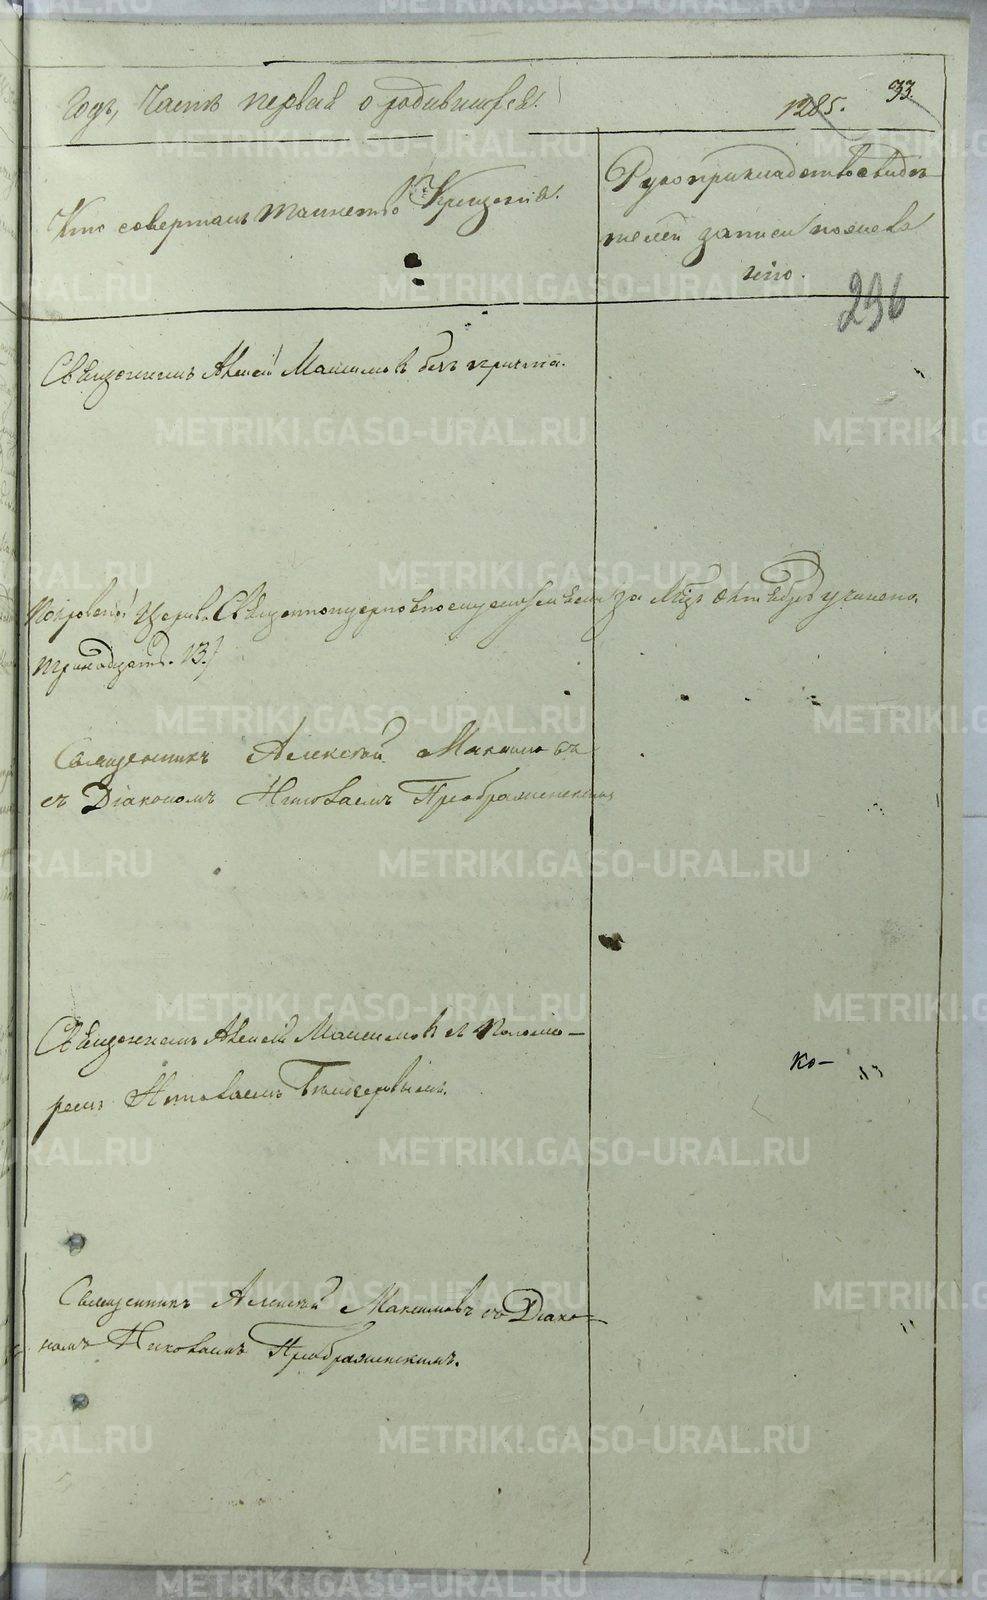 Годъ, Часть первая о родившихся.
1285. 33.
Кто совершалъ таинство Крещенія.
Рукоприкладство свидѣ-
телей записи по жела-
нію.
296
Священникъ Алексей Максимовъ безъ причта.
Покровской Церкви Священноцерковнослужителями за Мцъ Октябрь учинено.
тринадцать. 13.
Священникъ Алексѣй Максимовъ
съ Діакономъ Николаемъ Преображенскимъ
Священникъ Алексей Максимовъ съ Поломо-
ремъ Николаемъ
ко-
Священникъ Алексѣй Максимовъ съ Діако-
номъ Николаемъ Преображенскимъ.
METRIKI.GASO-URAL.RU